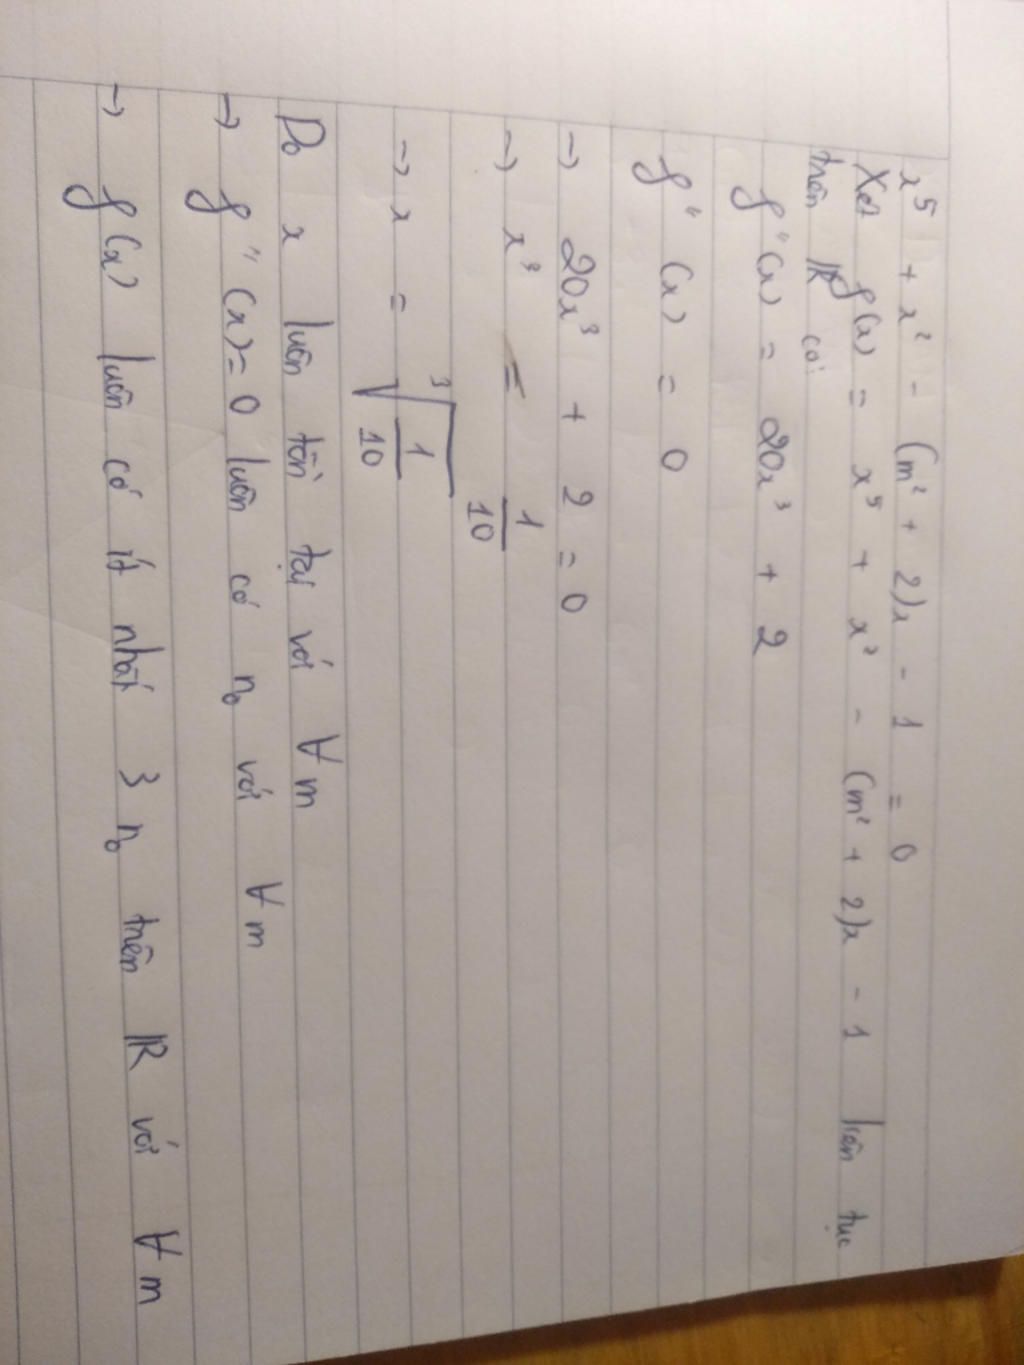 x⁵ + x² - (m² + 2)x - 1 = 0
Xét f(x) = x⁵ + x² - (m² + 2)x - 1 liên tục
trên ℝ có:
f''(x) = 20x³ + 2
f''(x) = 0
→ 20x³ + 2 = 0
→ x³ = 1/10
→ x = ∛(1/10)
Do x luôn tồn tại với ∀m
→ f''(x) = 0 luôn có n₀ với ∀m
→ f(x) luôn có ít nhất 3 n₀ trên ℝ với ∀m